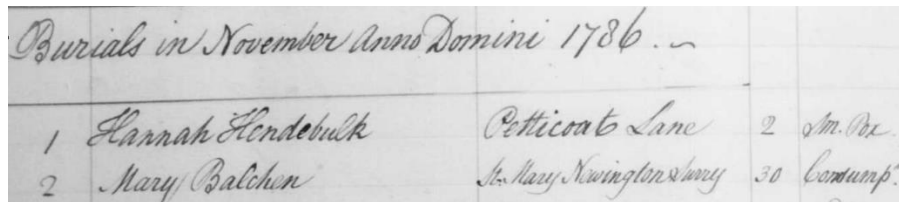 Burials in November Anno Domini 1786.
1 Hannah Hendebulk Petticoat Lane 2 Sm. Pox
2 Mary Balchen St. Mary Newington Surry 30 Consump.